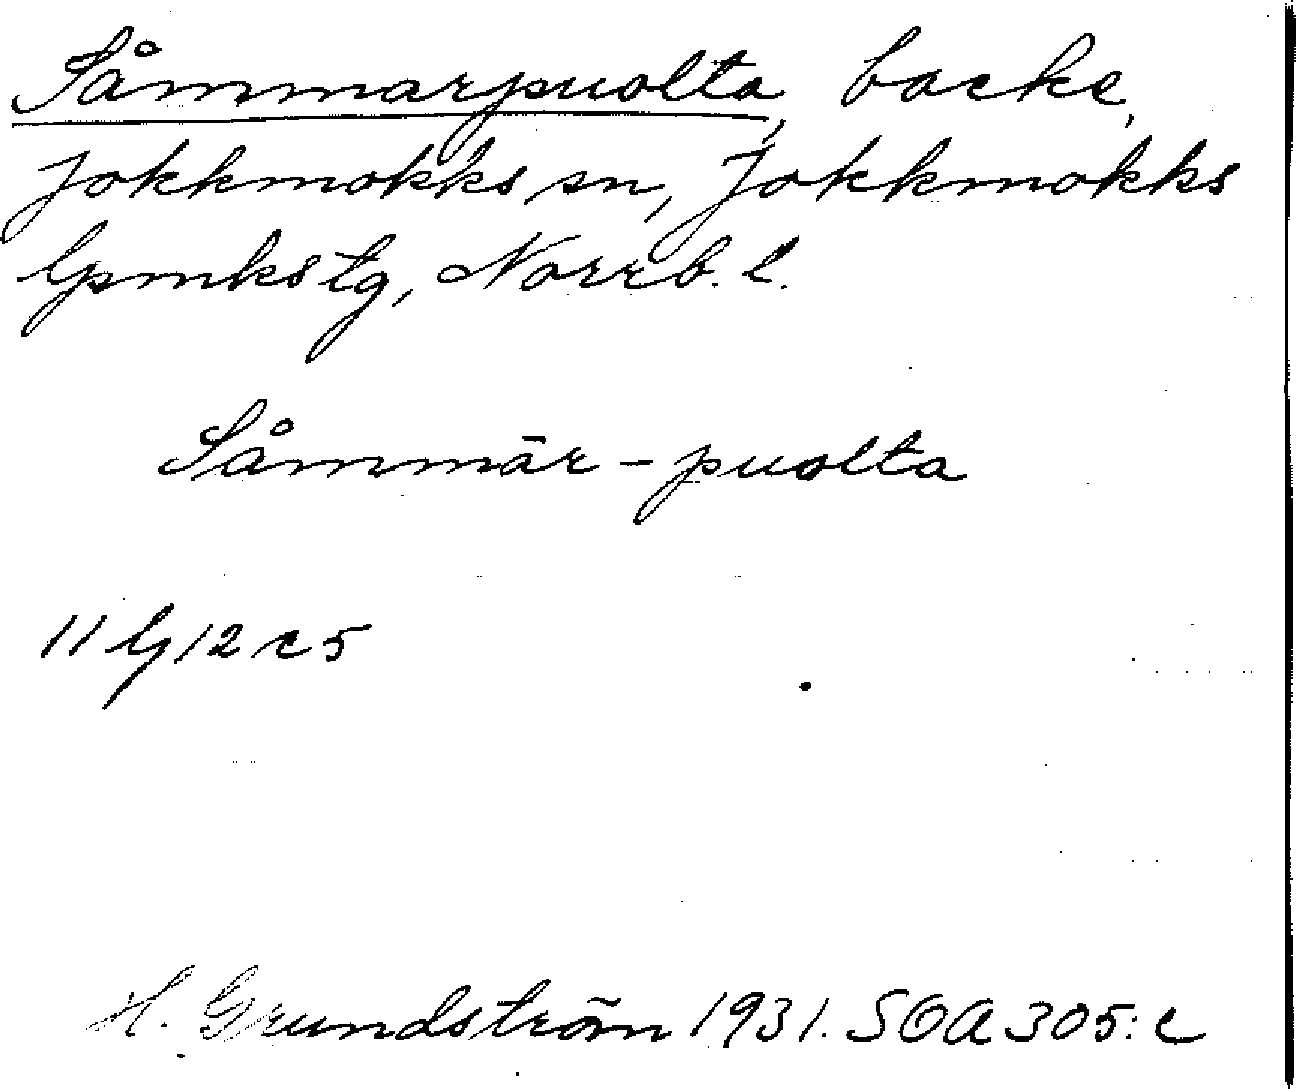 Såmmarpuolta, backe,
Jokkmokks sn, Jokkmokks
lpmkstg, Norrb. l.
Såmmār-puolta
11 Ly 12 c 5
H. Grundström 1931. SOA 305: c